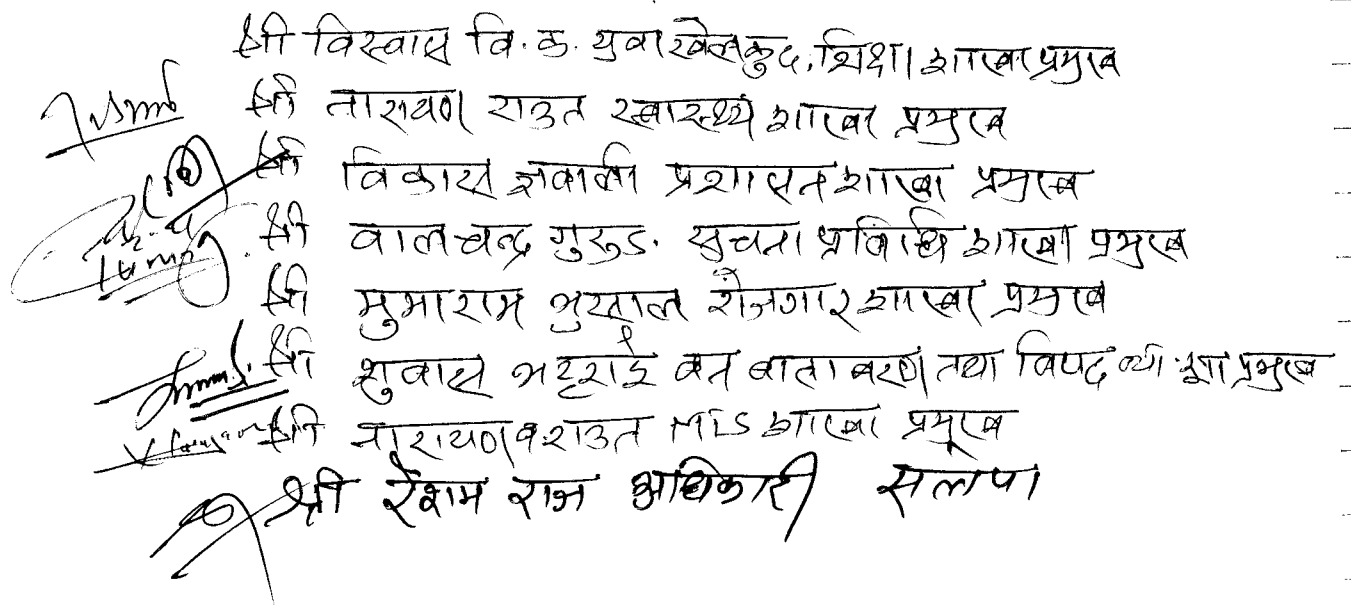 श्री विस्वास वि. क. युवा खेलकुद, शिक्षा शाखा प्रमुख
श्री नारायण राउत स्वास्थ्य शाखा प्रमुख
श्री विकास ज्ञवाली प्रशासन शाखा प्रमुख
श्री वालचन्द्र गुरुङ. सुचना प्रविधि शाखा प्रमुख
श्री मुमाराम भुसाल रोजगार शाखा प्रमुख
श्री शुवास भट्टराई वन वातावरण तथा विपद व्य. शा प्रमुख
श्री नारायण व. राउत MIS शाखा प्रमुख
श्री रेशम राज अधिकारी सलपा